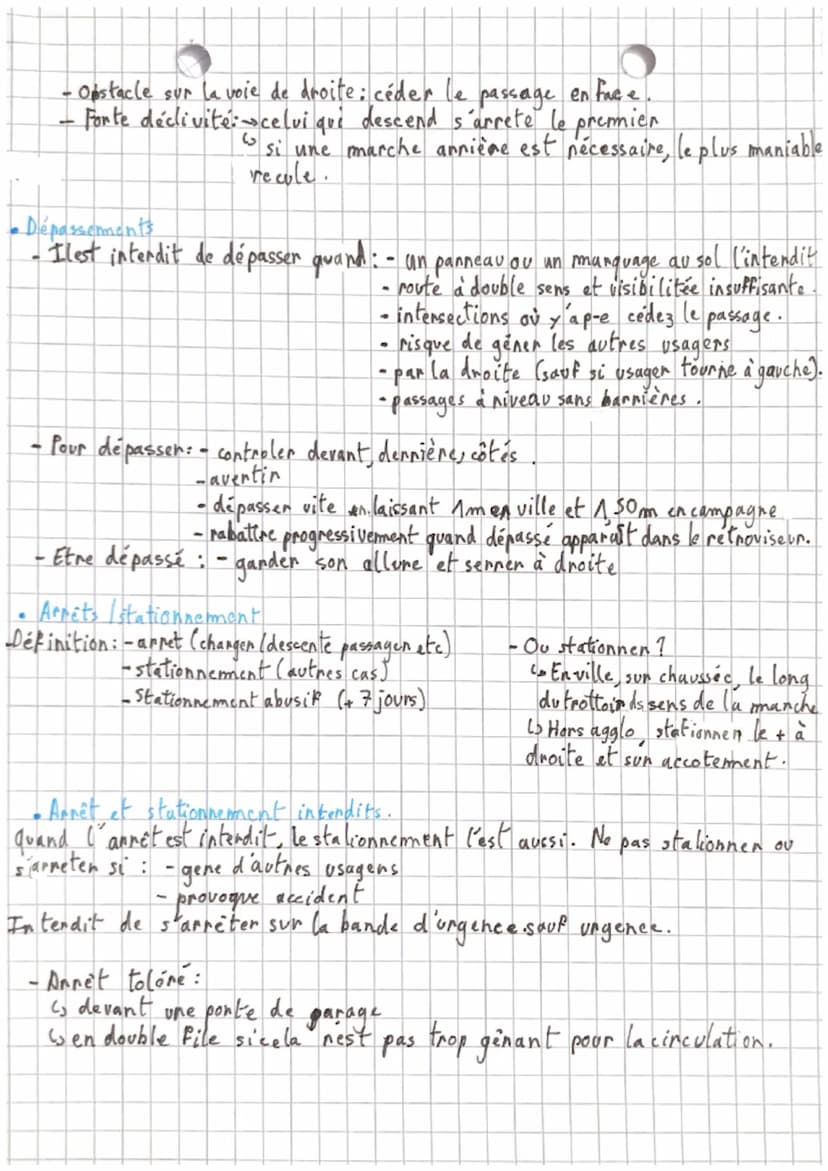 - Obstacle sur la voie de droite : céder le passage en face.
- Forte déclivité : → celui qui descend s'arrete le premier
↳ si une marche arrière est nécessaire, le plus maniable
recule.
• Dépassements
- Il est interdit de dépasser quand : - un panneau ou un marquage au sol l'interdit
- route à double sens et visibilitée insuffisante.
- intersections où y'a p-e cédez le passage.
- risque de géner les autres usagers
- par la droite (sauf si usager tourne à gauche).
- passages à niveau sans barrières.
- Pour dépasser : - controler devant, derrière, côtés.
- avertir
- dépasser vite en laissant 1m en ville et 1,50m en campagne
- rabattre progressivement quand dépassé apparaît dans le rétroviseur.
- Etre dépassé : - garder son allure et serrer à droite
• Arrêts / stationnement
Définition : - arret (charger/descente passager etc)
- stationnement (autres cas)
- Stationnement abusif (+ 7 jours)
- Ou stationner ?
↳ En ville, sur chaussée, le long
du trottoir ds sens de la marche
↳ Hors agglo, stationner le + à
droite et sur accotement.
• Arrêt et stationnement interdits.
Quand l'arrêt est interdit, le stationnement l'est aussi. Ne pas stationner ou
s'arreter si : - gene d'autres usagers
- provoque accident
Interdit de s'arrêter sur la bande d'urgence sauf urgence.
- Arrêt toléré :
↳ devant une porte de garage
↳ en double file si cela n'est pas trop gênant pour la circulation.